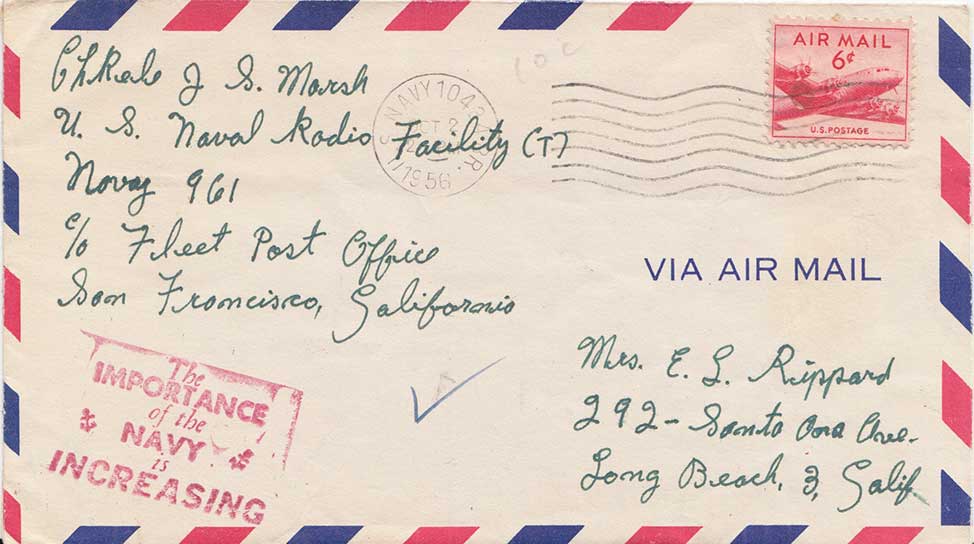 ChRele J S. Marsh
U. S. Naval Radio Facility (T)
Navy 961
c/o Fleet Post Office
San Francisco, California
NAVY 1043
BR.
1956
10c
AIR MAIL
6¢
U.S. POSTAGE
VIA AIR MAIL
Mrs. E. L. Rippard
292 - Santa Ana Ave.
Long Beach, 3, Calif
The
IMPORTANCE
of the
NAVY
is
INCREASING